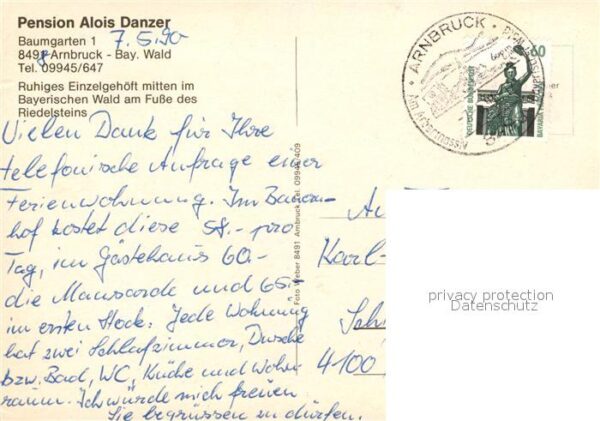 Pension Alois Danzer
Baumgarten 1
7.5.90
8491 Arnbruck - Bay. Wald
Tel. 09945/647
Ruhiges Einzelgehöft mitten im
Bayerischen Wald am Fuße des
Riedelsteins
Vielen Dank für Ihre
telefonische Anfrage einer
Ferienwohnung. Im Bauern-
hof kostet diese 58.- pro
Tag, im Gästehaus 60.-
die Mansarde und 65.-
im ersten Stock. Jede Wohnung
hat zwei Schlafzimmer, Dusche
bzw. Bad, WC, Küche und Wohn
raum. Ich würde mich freuen
Sie begrüssen zu dürfen.
Foto Weber 8491 Arnbruck Tel. 09945/409
ARNBRUCK
60
DEUTSCHE BUNDESPOST
BAVARIA MÜNCHEN
Karl-
4100
privacy protection
Datenschutz